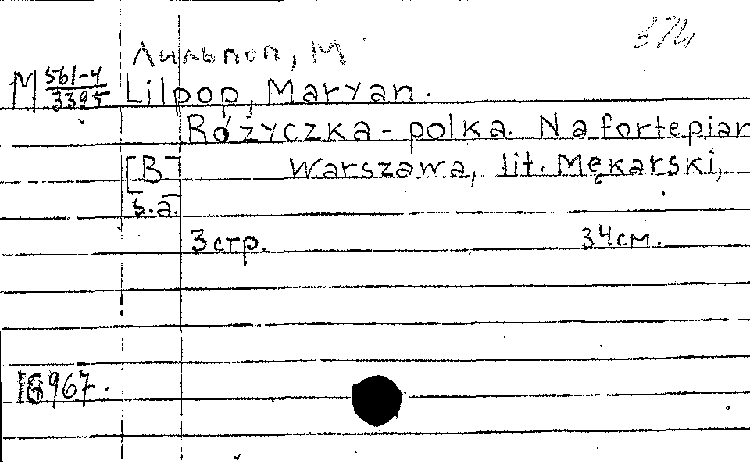 Лильпоп, М
М 561-4/3395 Lilpop, Maryan.
Różyczka-polka. Na fortepian
[B Warszawa, lit. Mękarski,
s.a.
3 стр. 34 см.
967.